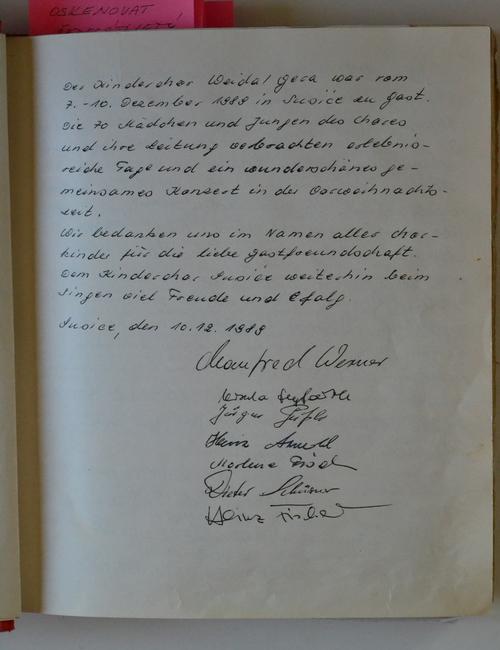 OSKENOVAT
Der Kinderchor Weida/Gera war vom
7.-10. Dezember 1989 in Sušice zu Gast.
Die 70 Mädchen und Jungen des Chores
und ihre Leitung verbrachten erlebnis-
reiche Tage und ein wunderschönes ge-
meinsames Konzert in der Vorweihnachts-
zeit.
Wir bedanken uns im Namen aller Chor-
kinder für die liebe Gastfreundschaft.
Dem Kinderchor Sušice weiterhin beim
Singen viel Freude und Erfolg.
Sušice, den 10.12.1989
Manfred Werner
Ursula Seyfarth
Jürgen
Heinz Arnold
Marlene
Dieter
Heinz Fischer